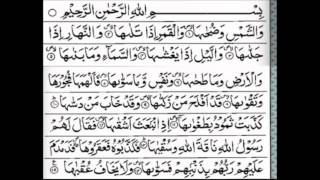 بِسْمِ اللهِ الرَّحْمٰنِ الرَّحِيْمِ
وَالشَّمْسِ وَضُحٰىهَا ۝ وَالْقَمَرِ اِذَا تَلٰىهَا ۝ وَالنَّهَارِ اِذَا
جَلّٰىهَا ۝ وَالَّيْلِ اِذَا يَغْشٰىهَا ۝ وَالسَّمَآءِ وَمَا بَنٰىهَا ۝
وَالْاَرْضِ وَمَا طَحٰىهَا ۝ وَنَفْسٍ وَّمَا سَوّٰىهَا ۝ فَاَلْهَمَهَا فُجُوْرَهَا
وَتَقْوٰىهَا ۝ قَدْ اَفْلَحَ مَنْ زَكّٰىهَا ۝ وَقَدْ خَابَ مَنْ دَسّٰىهَا ۝
كَذَّبَتْ ثَمُوْدُ بِطَغْوٰىهَآ ۝ اِذِ انْۢبَعَثَ اَشْقٰىهَا ۝ فَقَالَ لَهُمْ
رَسُوْلُ اللهِ نَاقَةَ اللهِ وَسُقْيٰهَا ۝ فَكَذَّبُوْهُ فَعَقَرُوْهَا ۝ فَدَمْدَمَ
عَلَيْهِمْ رَبُّهُمْ بِذَنْۢبِهِمْ فَسَوّٰىهَا ۝ وَلَا يَخَافُ عُقْبٰهَا ۝